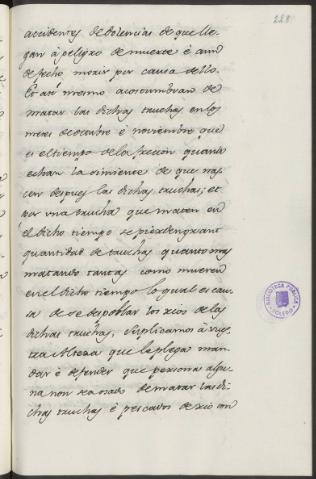 228
accidentes, de dolencias de que lle-
gan á peligro de muerte é aun
de fecho morir por causa dello.
Et asi mesmo acostumbran de
matar las dichas truchas en los
meses de octubre é noviembre que
es el tiempo de la quando
echan la simiente de que nas-
cen despues las dichas truchas; et
por una trucha que maten en
el dicho tiempo se pierde grant
quantidad de truchas quanto mas
matando tantas como mueren
en el dicho tiempo lo qual es cau-
sa de se despoblar los rios de las
dichas truchas, Suplicamos á vues-
tra Alteza que le plega man-
dar é defender que persona algu-
na non sea osado de matar las di-
chas truchas é pescados de rio con
BIBLIOTECA PÚBLICA
TOLEDO